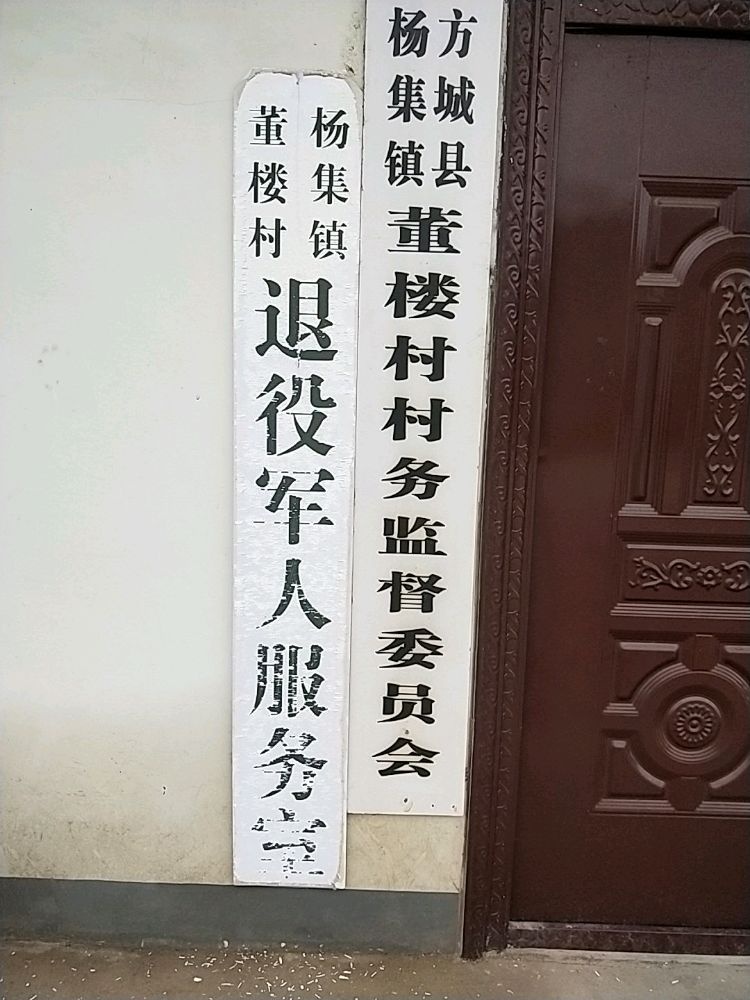 方城县
杨集镇
董楼村村务监督委员会
杨集镇
董楼村
退役军人服务室